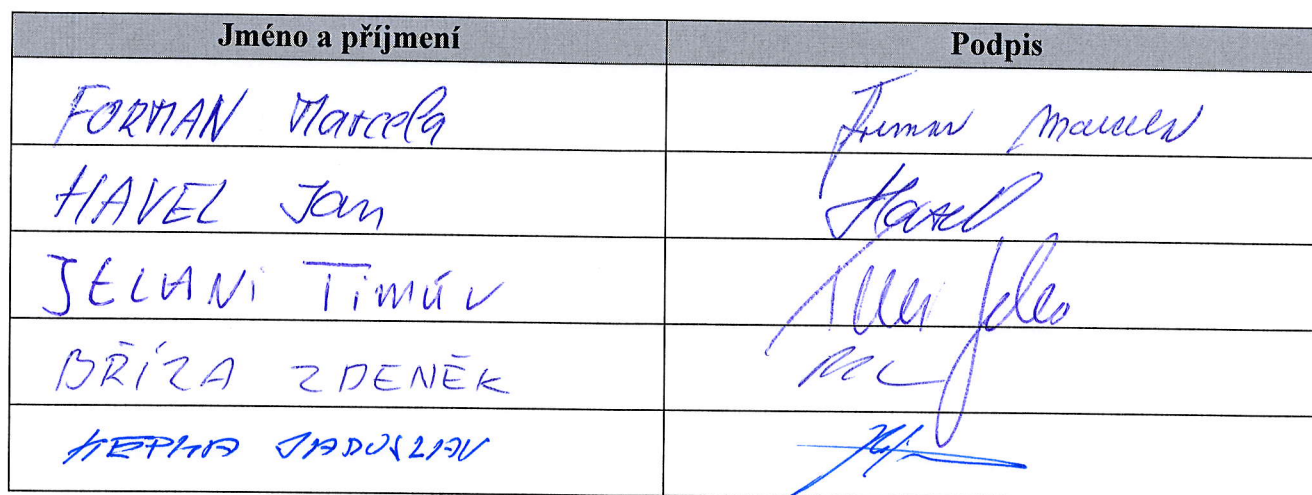 Jméno a příjmení Podpis
FORMAN Marcela Forman Marcela
HAVEL Jan Havel
JELANi Timúr
BŘÍZA ZDENĚK
JAROSLAV